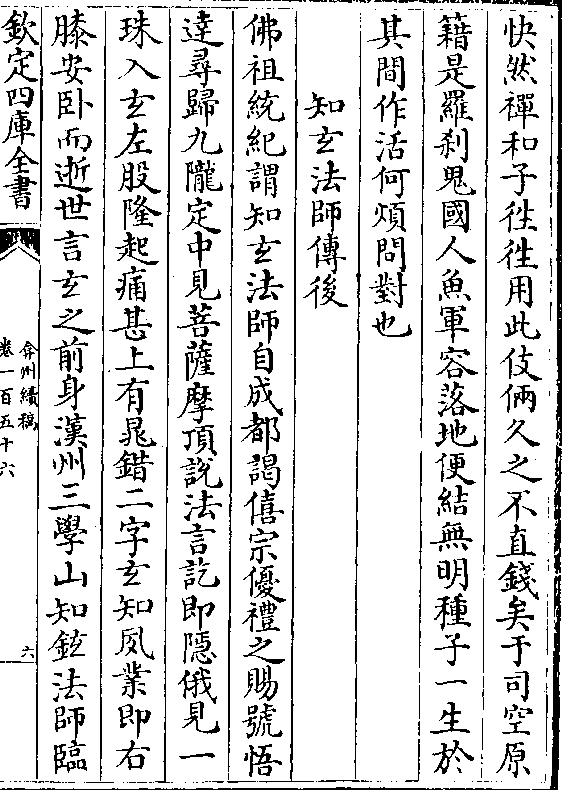 快然禪和子徃徃用此伎倆久之不直錢矣于司空原
籍是羅刹鬼國人魚軍容落地便結無明種子一生於
其間作活何煩問對也
知玄法師傳後
佛祖統紀謂知玄法師自成都謁僖宗優禮之賜號悟
達尋歸九隴定中見菩薩摩頂說法言訖即隱俄見一
珠入玄左股隆起痛甚上有晁錯二字玄知夙業即右
膝安卧而逝世言玄之前身漢州三學山知鉉法師臨
欽定四庫全書
弇州續稿
卷一百五十六
六